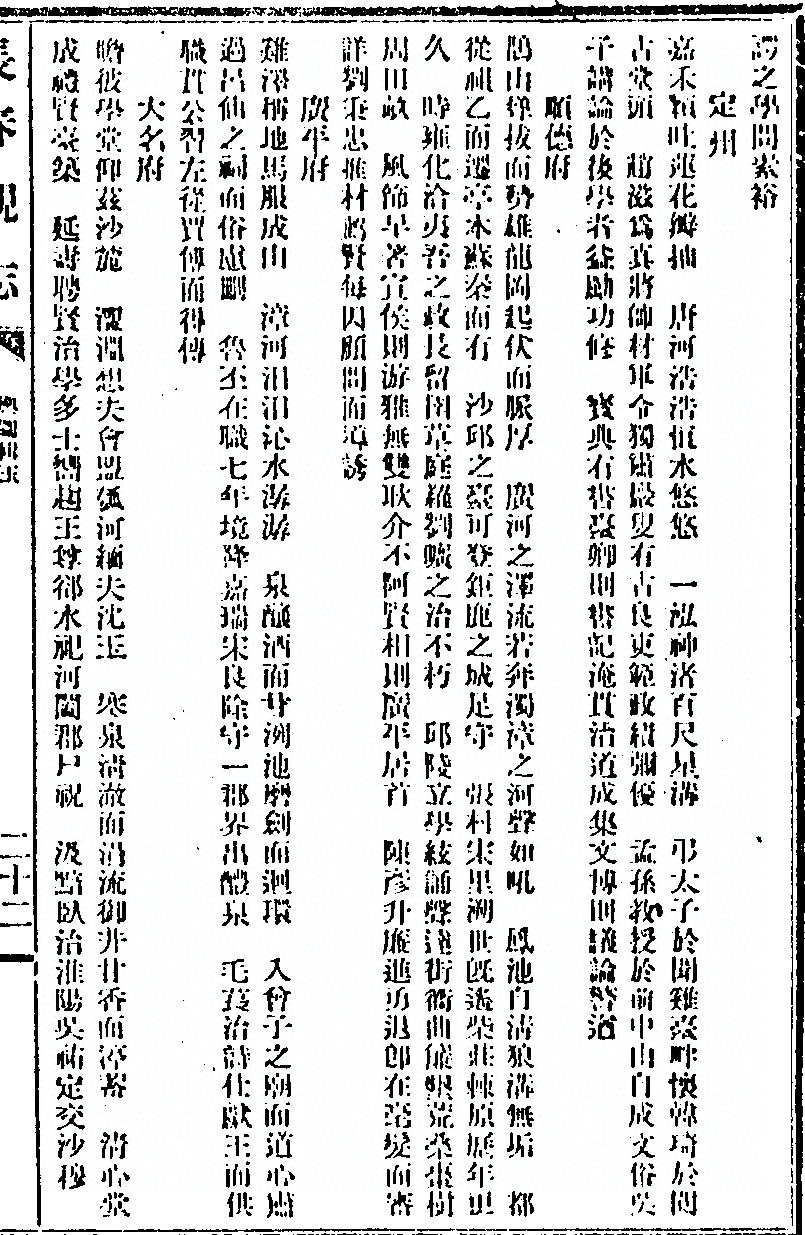 謌之學問素裕
定州
嘉禾穎吐蓮花瓣抽 唐河浩浩恒水悠悠 一泓神渚百尺星溝 弔太子於聞雞臺畔懷韓琦於閱
古堂頭 趙滋為真將帥材軍令獨肅最叟有古良吏範政績彌優 孟孫教授於前中山自成文俗吳
子講論於後學者益勵功修 寶典有書臺卿則書記淹貫治道成集文博則議論警遒
順德府
鵲山聳拔而勢雄龍岡起伏而脈厚 廣河之渾流若奔濁漳之河聲如吼 鳳池自清狼溝無垢 都
從祖乙而遷亭本蘇秦而有 沙邱之臺可登鉅鹿之城足守 張村宋里溯世旣遙柴莊棟原歷年更
久 時雍化洽夷吾之政長留囹草庭蘿劉曠之治不朽 邱陵立學絃誦聲滿街衢曲成墾荒桑棗樹
周田畝 風節早著宣侯則游雅無雙耿介不阿賢相則廣平居首 陳彥升廉進勇退郎在亳髮而審
詳劉秉忠推材薦賢每因顧問而導誘
廣平府
雞澤稱地馬服成山 漳河汩汩沁水潺潺 泉釀酒而甘洌池磨劍而迴環 入曾子之廟而道心肅
過呂仙之祠而俗慮刪 魯丕在職七年境降嘉瑞宋良除守一郡界出醴泉 毛萇治詩仕獻王而供
職貫公習左從賈傅而得傳
大名府
瞻彼學堂仰茲沙麓 澶淵想夫會盟瓠河緬夫沈玉 寒泉清澈而涓流御井甘香而渟蓄 清心堂
成禮賢臺築 延壽聘賢治學多士嚮趨王尊鄃水祀河闔郡尸祝 汲黯臥治淮陽吳祐定交沙穆
長春觀志
二十二